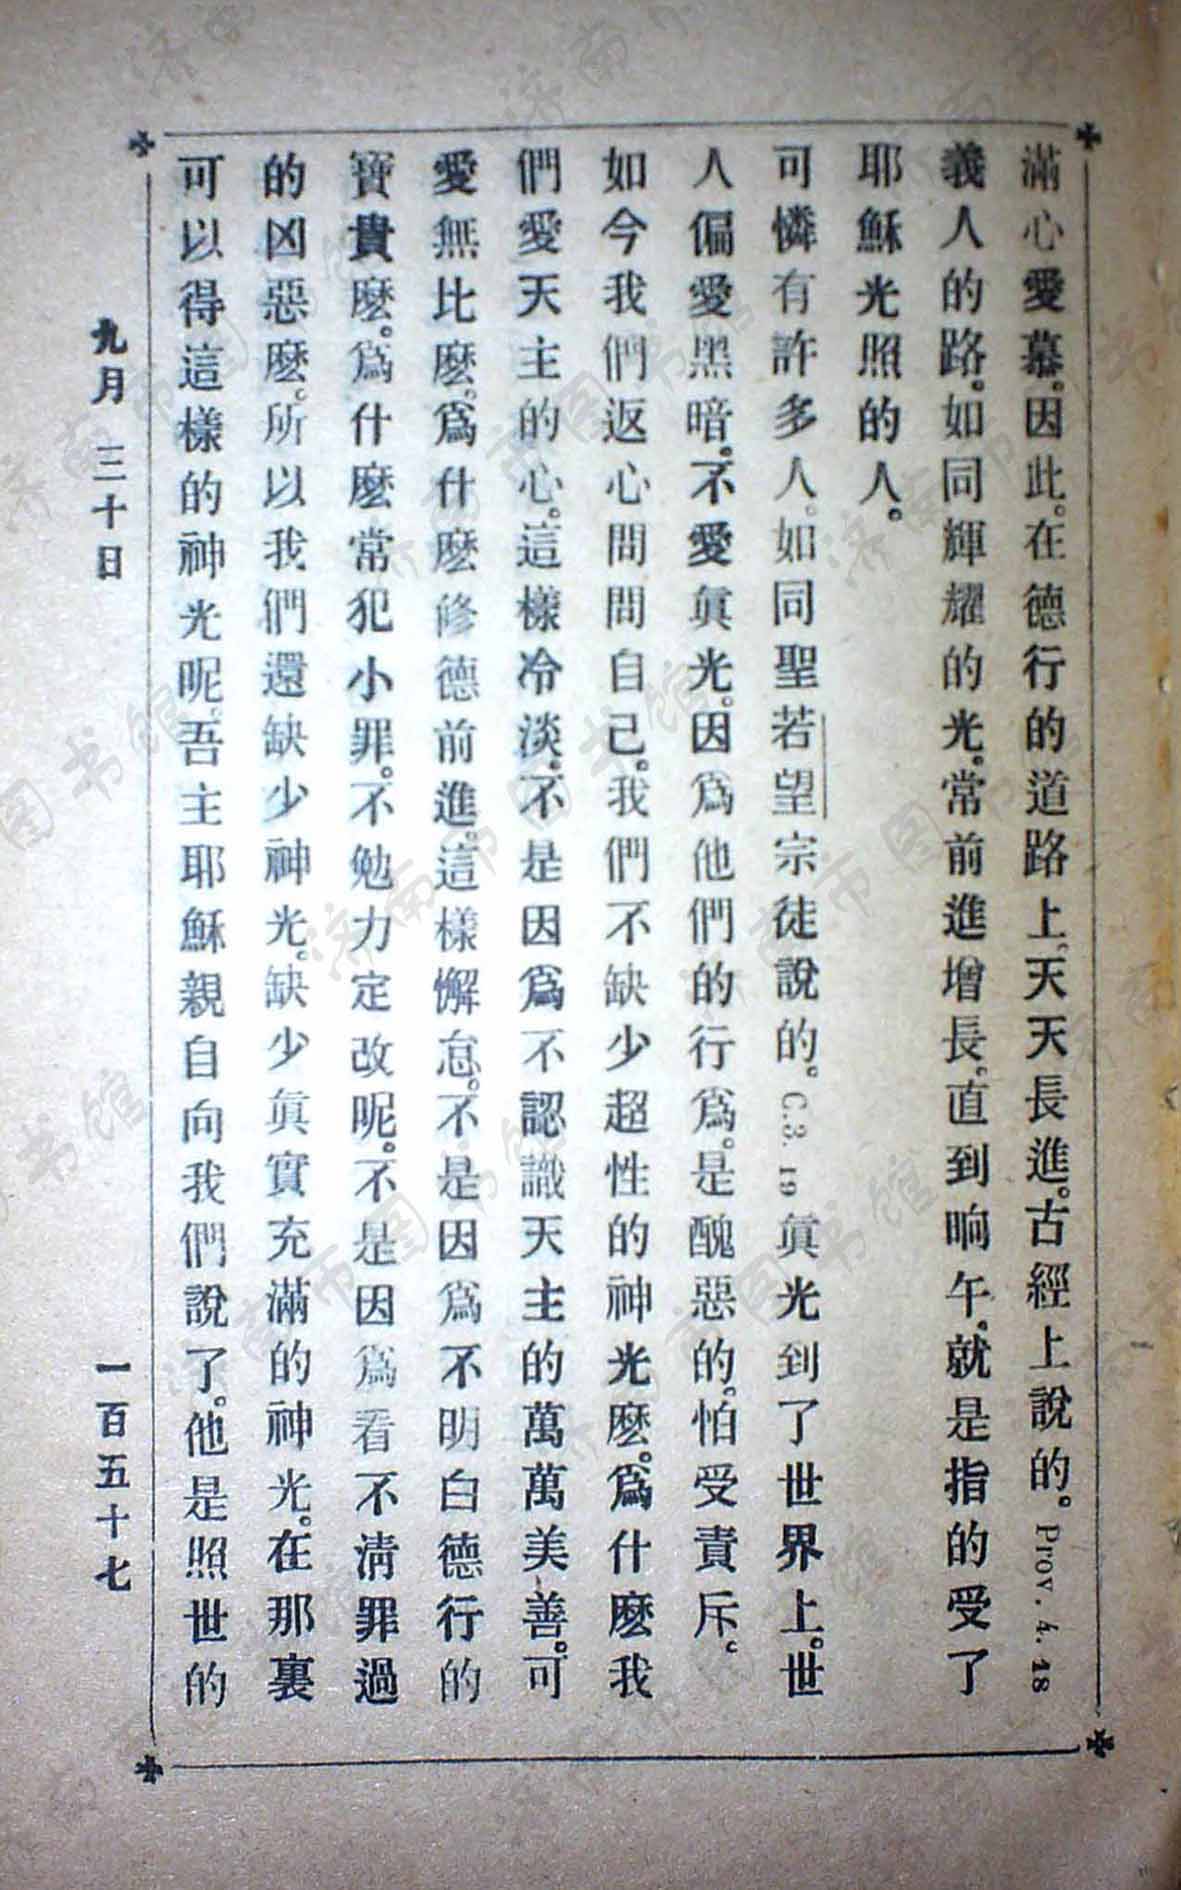 滿心愛慕。因此。在德行的道路上。天天長進。古經上說的。Prov. 4. 18
義人的路。如同輝耀的光。常前進增長。直到晌午。就是指的受了
耶穌光照的人。
可憐有許多人。如同聖若望宗徒說的。C.3. 19 眞光到了世界上。世
人偏愛黑暗。不愛眞光。因爲他們的行爲。是醜惡的。怕受責斥。
如今我們返心問問自己。我們不缺少超性的神光麽。爲什麽我
們愛天主的心。這樣冷淡。不是因爲不認識天主的萬萬美善。可
愛無比麽。爲什麽修德前進。這樣懈怠。不是因爲不明白德行的
寶貴麽。爲什麽常犯小罪。不勉力定改呢。不是因爲看不淸罪過
的凶惡麽。所以我們還缺少神光。缺少眞實充滿的神光。在那裏
可以得這樣的神光呢。吾主耶穌親自向我們說了。他是照世的
九月 三十日 一百五十七
济南市图书馆